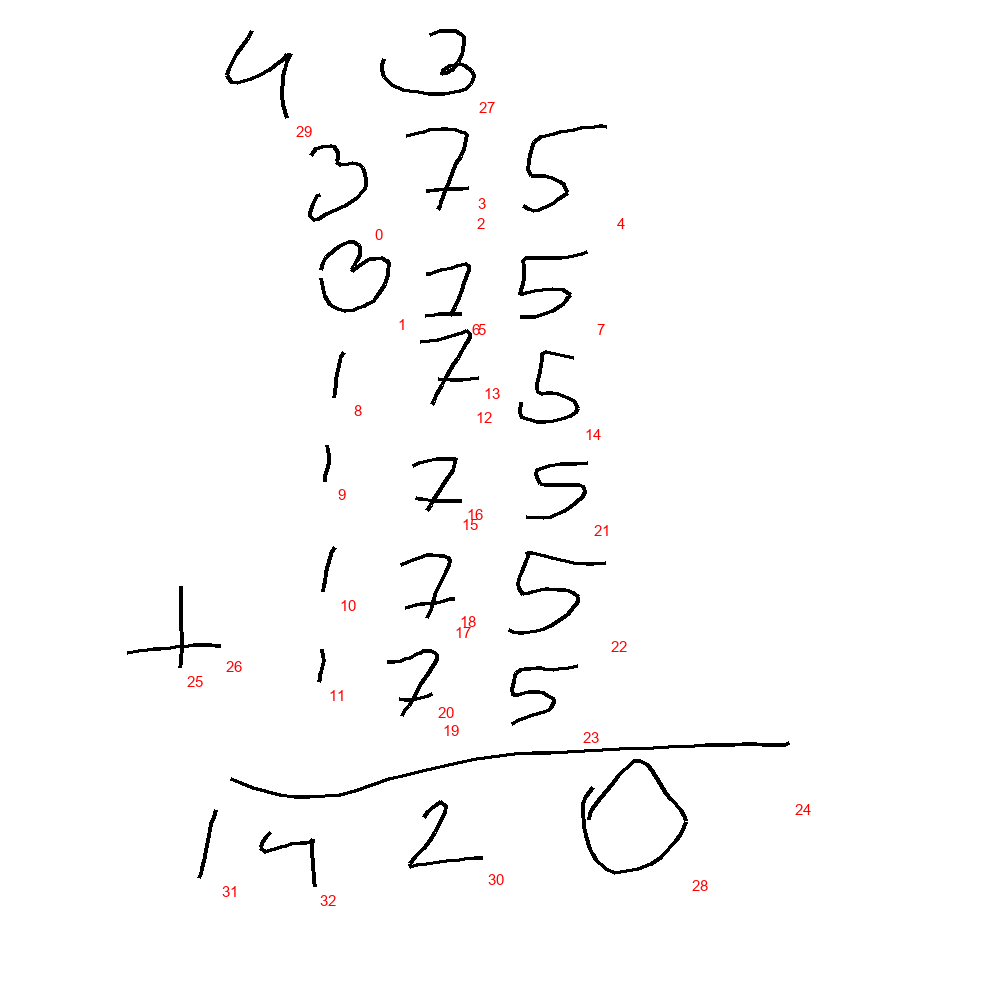 4 3
27
29
3 7 5
3
0 2 4
3 7 5
1 6 5 7
1 7 5
8 13
12 14
1 7 5
9 16
15 21
1 7 5
10 18
17 22
+ 1 7 5
25 26 11 20
19 23
24
1 4 2 0
31 32 30 28